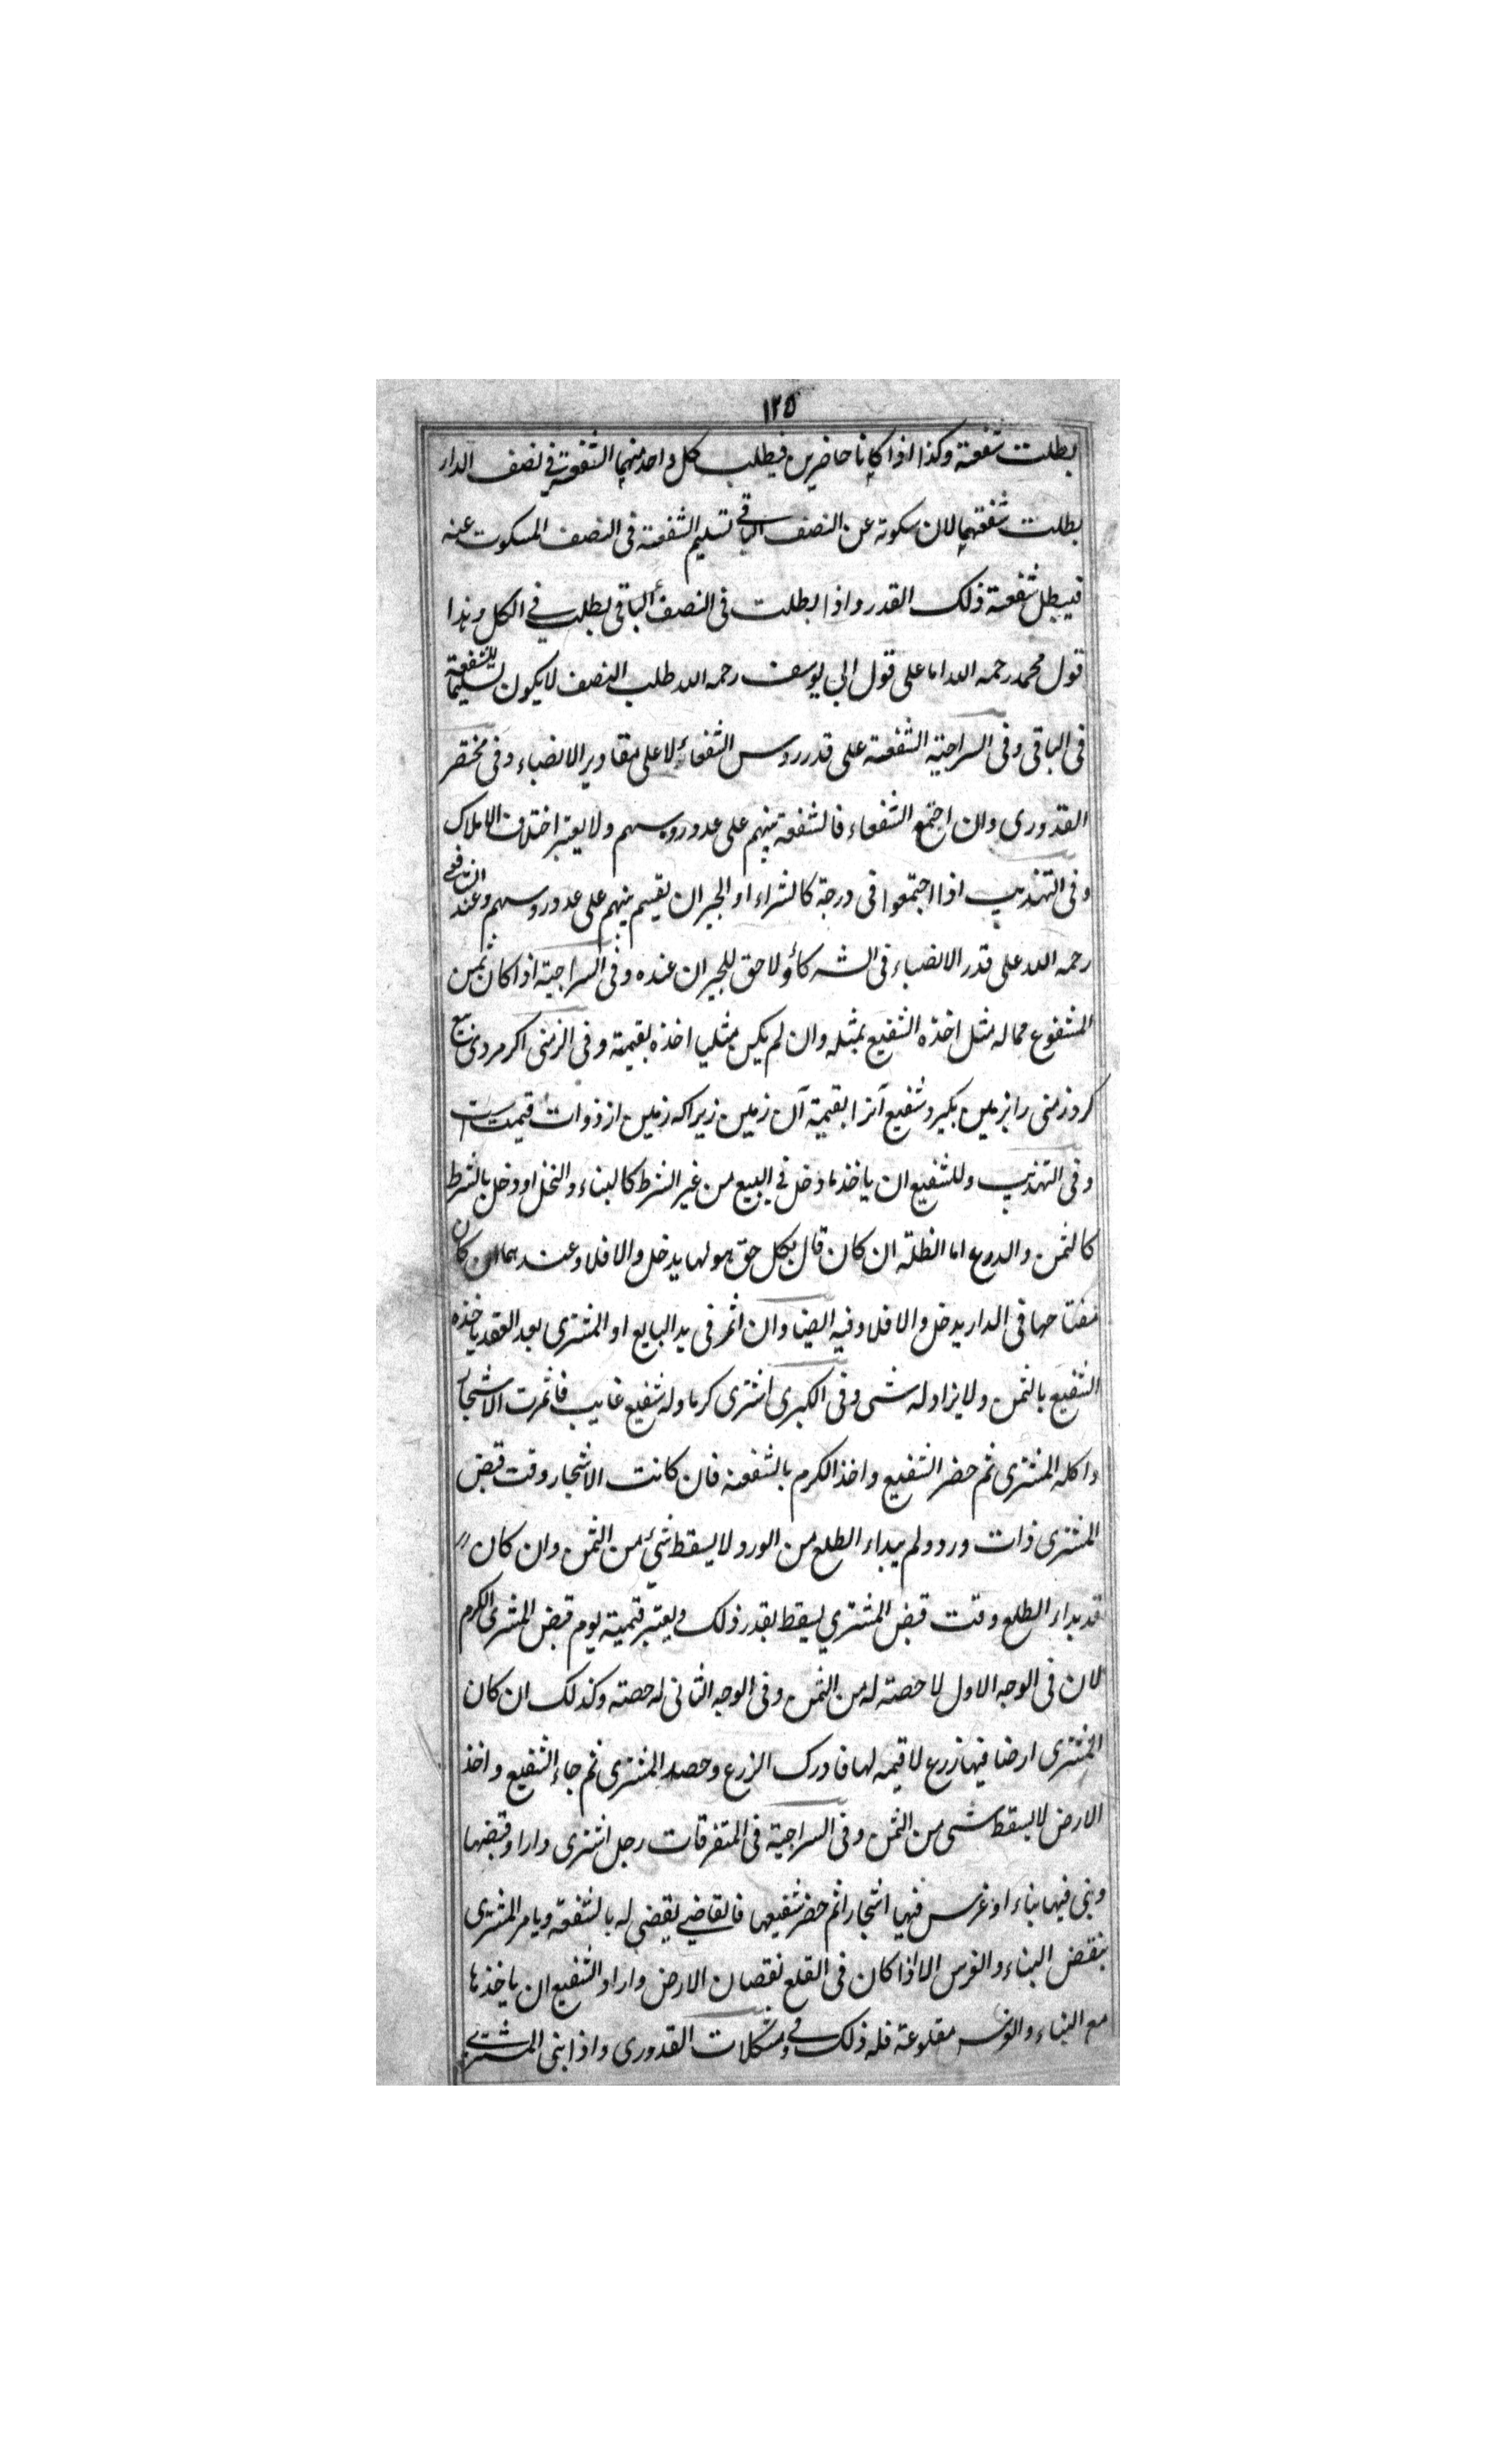 ١٢٥
بطلت شفعته وكذا اذا كانا حاضرين فيطلب كل واحد منهما الشفعة في نصف الدار
بطلت شفعتهما لان سكوته عن النصف الباقي تسليم الشفعة فى النصف المسكوت عنه
فيبطل شفعة ذلك القدر واذا بطلت فى النصف الباقى بطلت في الكل وهذا
قول محمد رحمه الله اما على قول ابي يوسف رحمه الله طلب النصف لا يكون تسليما للشفعة
فى الباقى وفى السراجية الشفعة على قدر روس الشفعاء لا على مقادير الانصباء وفى مختصر
القدورى وان اجتمع الشفعاء فالشفعة بينهم على عدد روسهم ولا يعتبر اختلاف الاملاك
وفى التهذيب اذا اجتمعوا فى درجة كالشراء او الجيران يقسم بينهم على عدد روسهم وعند الشافعي
رحمه الله على قدر الانصباء فى الشركاء ولا حق للجيران عنده وفى السراجية اذا كان ثمن
المشفوع مماله مثل اخذه الشفيع بمثله وان لم يكن مثليا اخذه بقيمته وفى الزمنى اكر مردى بيع
كرد زمنى را بزمين بكيرد شفيع آنرا بقيمة آن زمين زيراكه زمين از ذوات قيمت است
وفى التهذيب وللشفيع ان ياخذ ما دخل في البيع من غير الشرط كالبناء والنخل او دخل بالشرط
كالثمن والدرع اما الظلة ان كان قال بكل حق هو لها يدخل والا فلا وعندهما ان كان
مفتاحها فى الدار يدخل والا فلا وفيه ايضا وان اثمر فى يد البايع او المشترى بعد العقد ياخذه
الشفيع بالثمن ولا يزاد له شى وفى الكبرى اشترى كرما وله شفيع غايب فاثمرت الاشجار
واكله المشترى ثم حضر الشفيع واخذ الكرم بالشفعة فان كانت الاشجار وقت قبض
المشترى ذات ورد ولم يبداء الطلع من الورد لا يسقط شئ من الثمن وان كان
قد بداء الطلع وقت قبض المشتري يسقط بقدر ذلك ويعتبر قيمته يوم قبض المشترى الكرم
لان فى الوجه الاول لا حصته له من الثمن وفى الوجه الثانى له حصته وكذلك ان كان
المشترى ارضا فيها زرع لا قيمه لها فادرك الزرع وحصد المشترى ثم جاء الشفيع واخذ
الارض لا يسقط شى من الثمن وفى السراجية فى المتفرقات رجل اشترى دارا وقبضها
وبنى فيها بناء او غرس فيها اشجارا ثم حضر شفيعها فالقاضي يقضى له بالشفعة ويامر المشترى
بنقض البناء والغرس الا اذا كان فى القلع نقصان الارض واراد الشفيع ان ياخذها
مع البناء والغرس مقلوعة فله ذلك وفي مشكلات القدورى واذا بنى المشتري